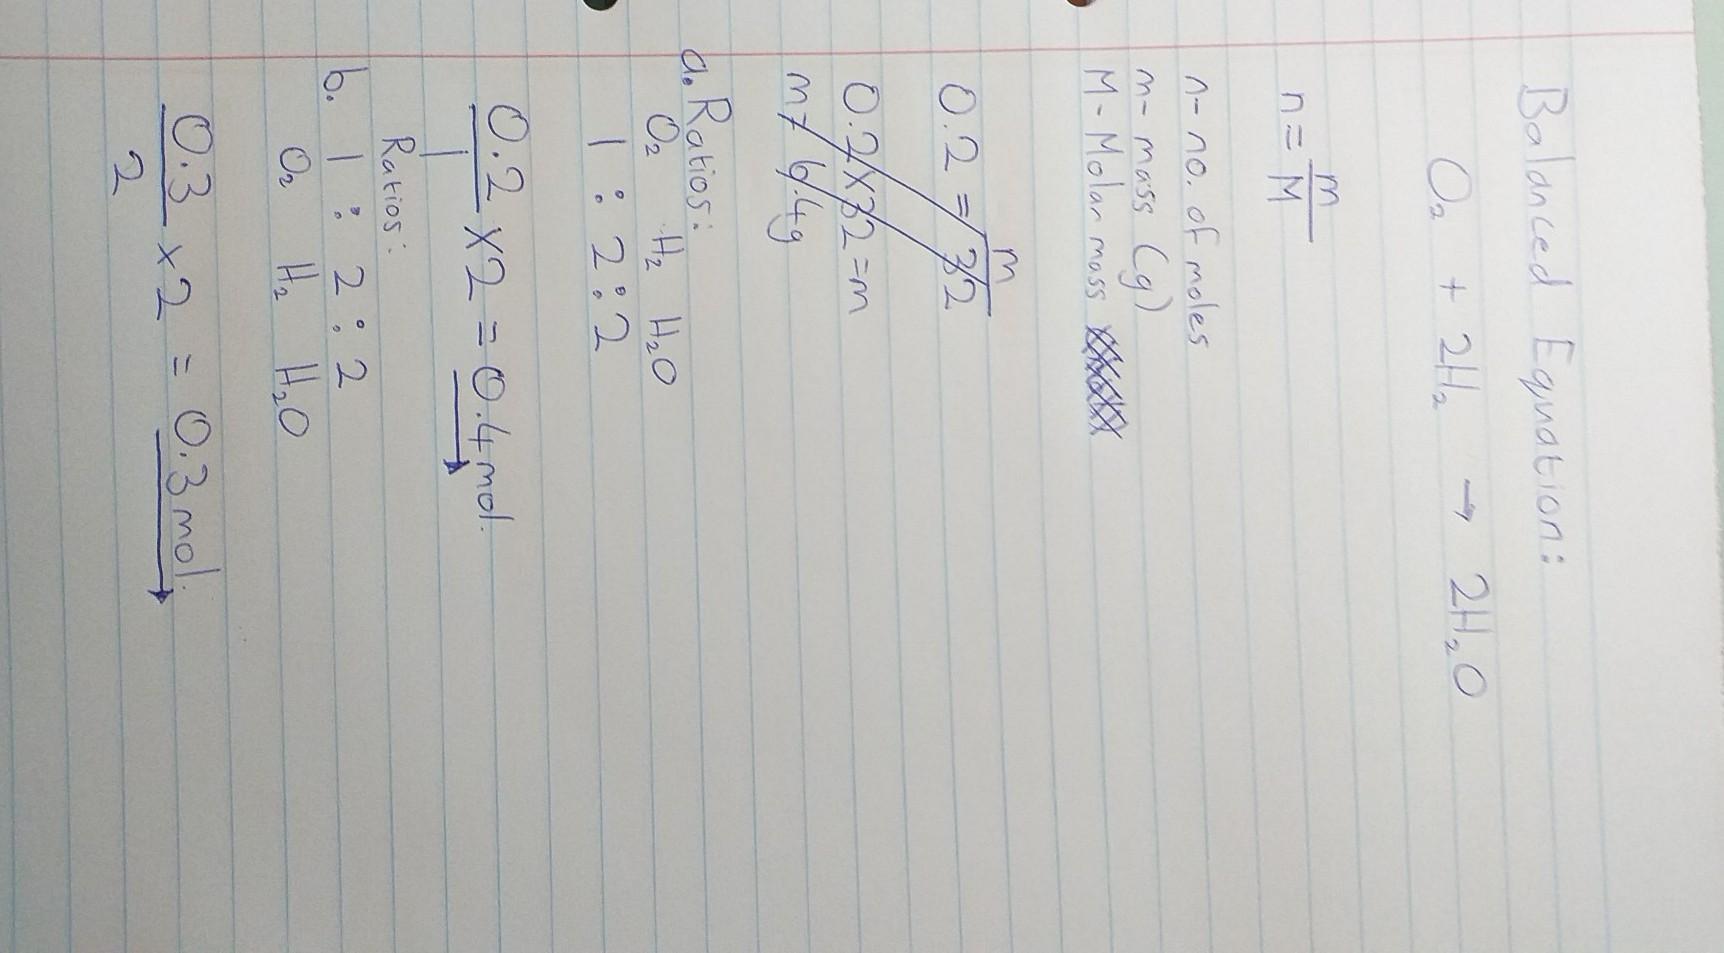 Balanced Equation:
O₂ + 2H₂ → 2H₂O
n = m/M
n - no. of moles
m - mass (g)
M - Molar mass
0.2 = m/32
0.2 x 32 = m
m = 6.4g
a. Ratios:
O₂ H₂ H₂O
1 : 2 : 2
0.2/1 x 2 = 0.4 mol.
Ratios:
b. 1 : 2 : 2
O₂ H₂ H₂O
0.3/2 x 2 = 0.3 mol.